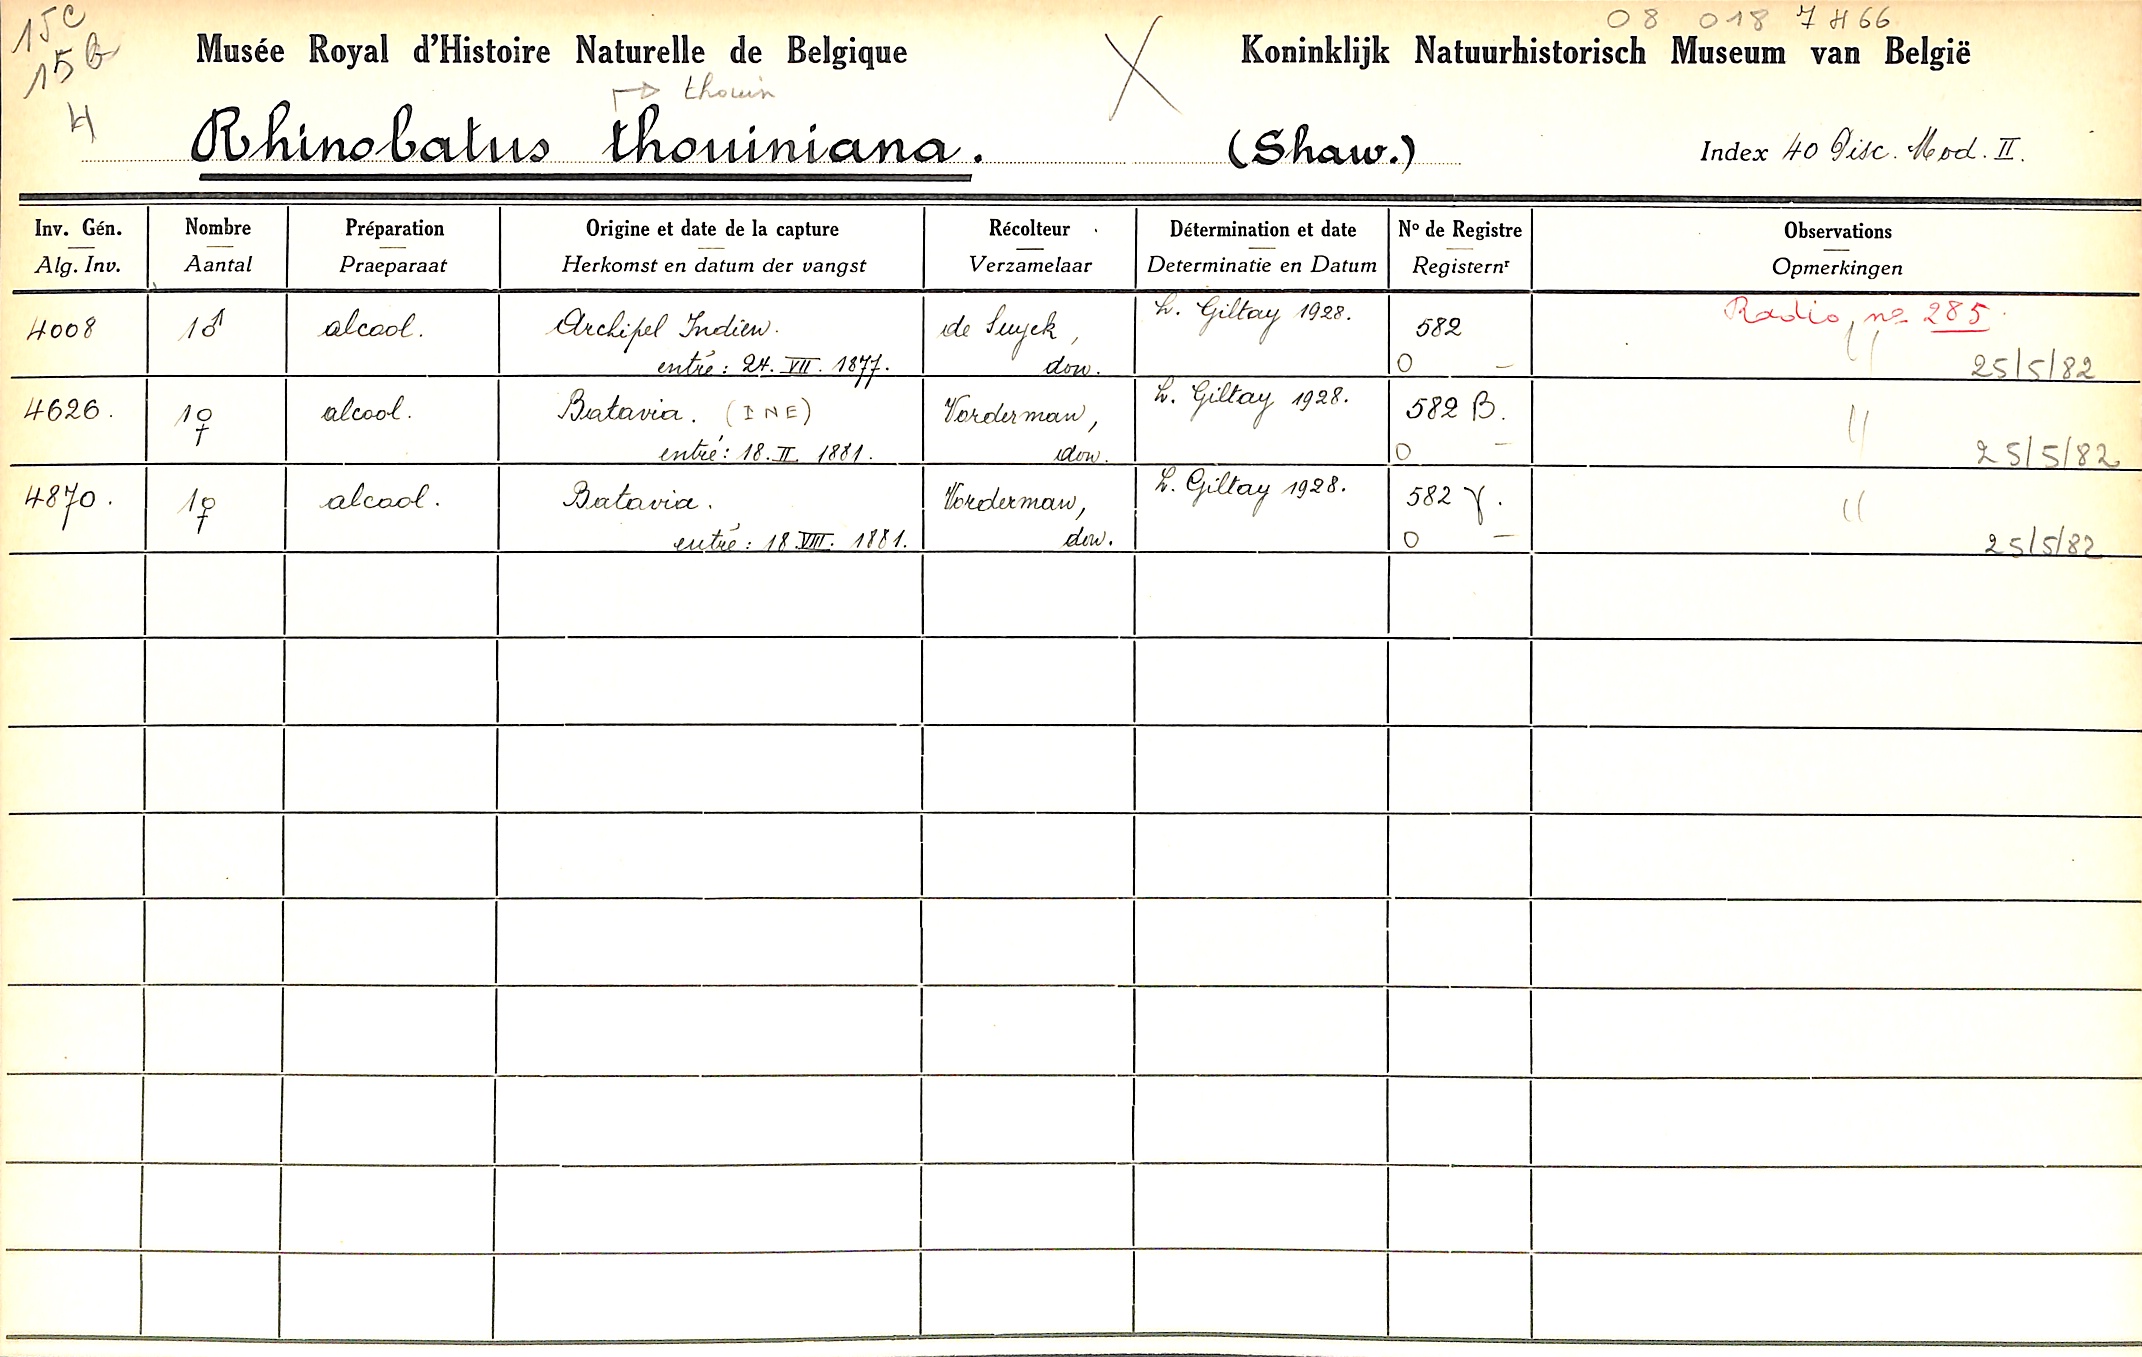 15c
15b
4
08 018 7 H 66
Musée Royal d'Histoire Naturelle de Belgique
Koninklijk Natuurhistorisch Museum van België
thouin
Rhinobatus thouiniana. (Shaw.)
Index 40 Pisc. Mod. II.
Inv. Gén. Nombre Préparation Origine et date de la capture Récolteur Détermination et date Nº de Registre Observations
Alg. Inv. Aantal Praeparaat Herkomst en datum der vangst Verzamelaar Determinatie en Datum Registernr Opmerkingen
4008 1♂ alcool. Archipel Indien. de Suyck, L. Giltay 1928. 582 Radio, nº 285.
entré: 24. VII. 1877. don. O – 25/5/82
4626. 1♀ alcool. Batavia. (INE) Vorderman, L. Giltay 1928. 582 B. "
entré: 18. II. 1881. don. O – 25/5/82
4870. 1♀ alcool. Batavia. Vorderman, L. Giltay 1928. 582 γ. "
entré: 18. VIII. 1881. don. O – 25/5/82